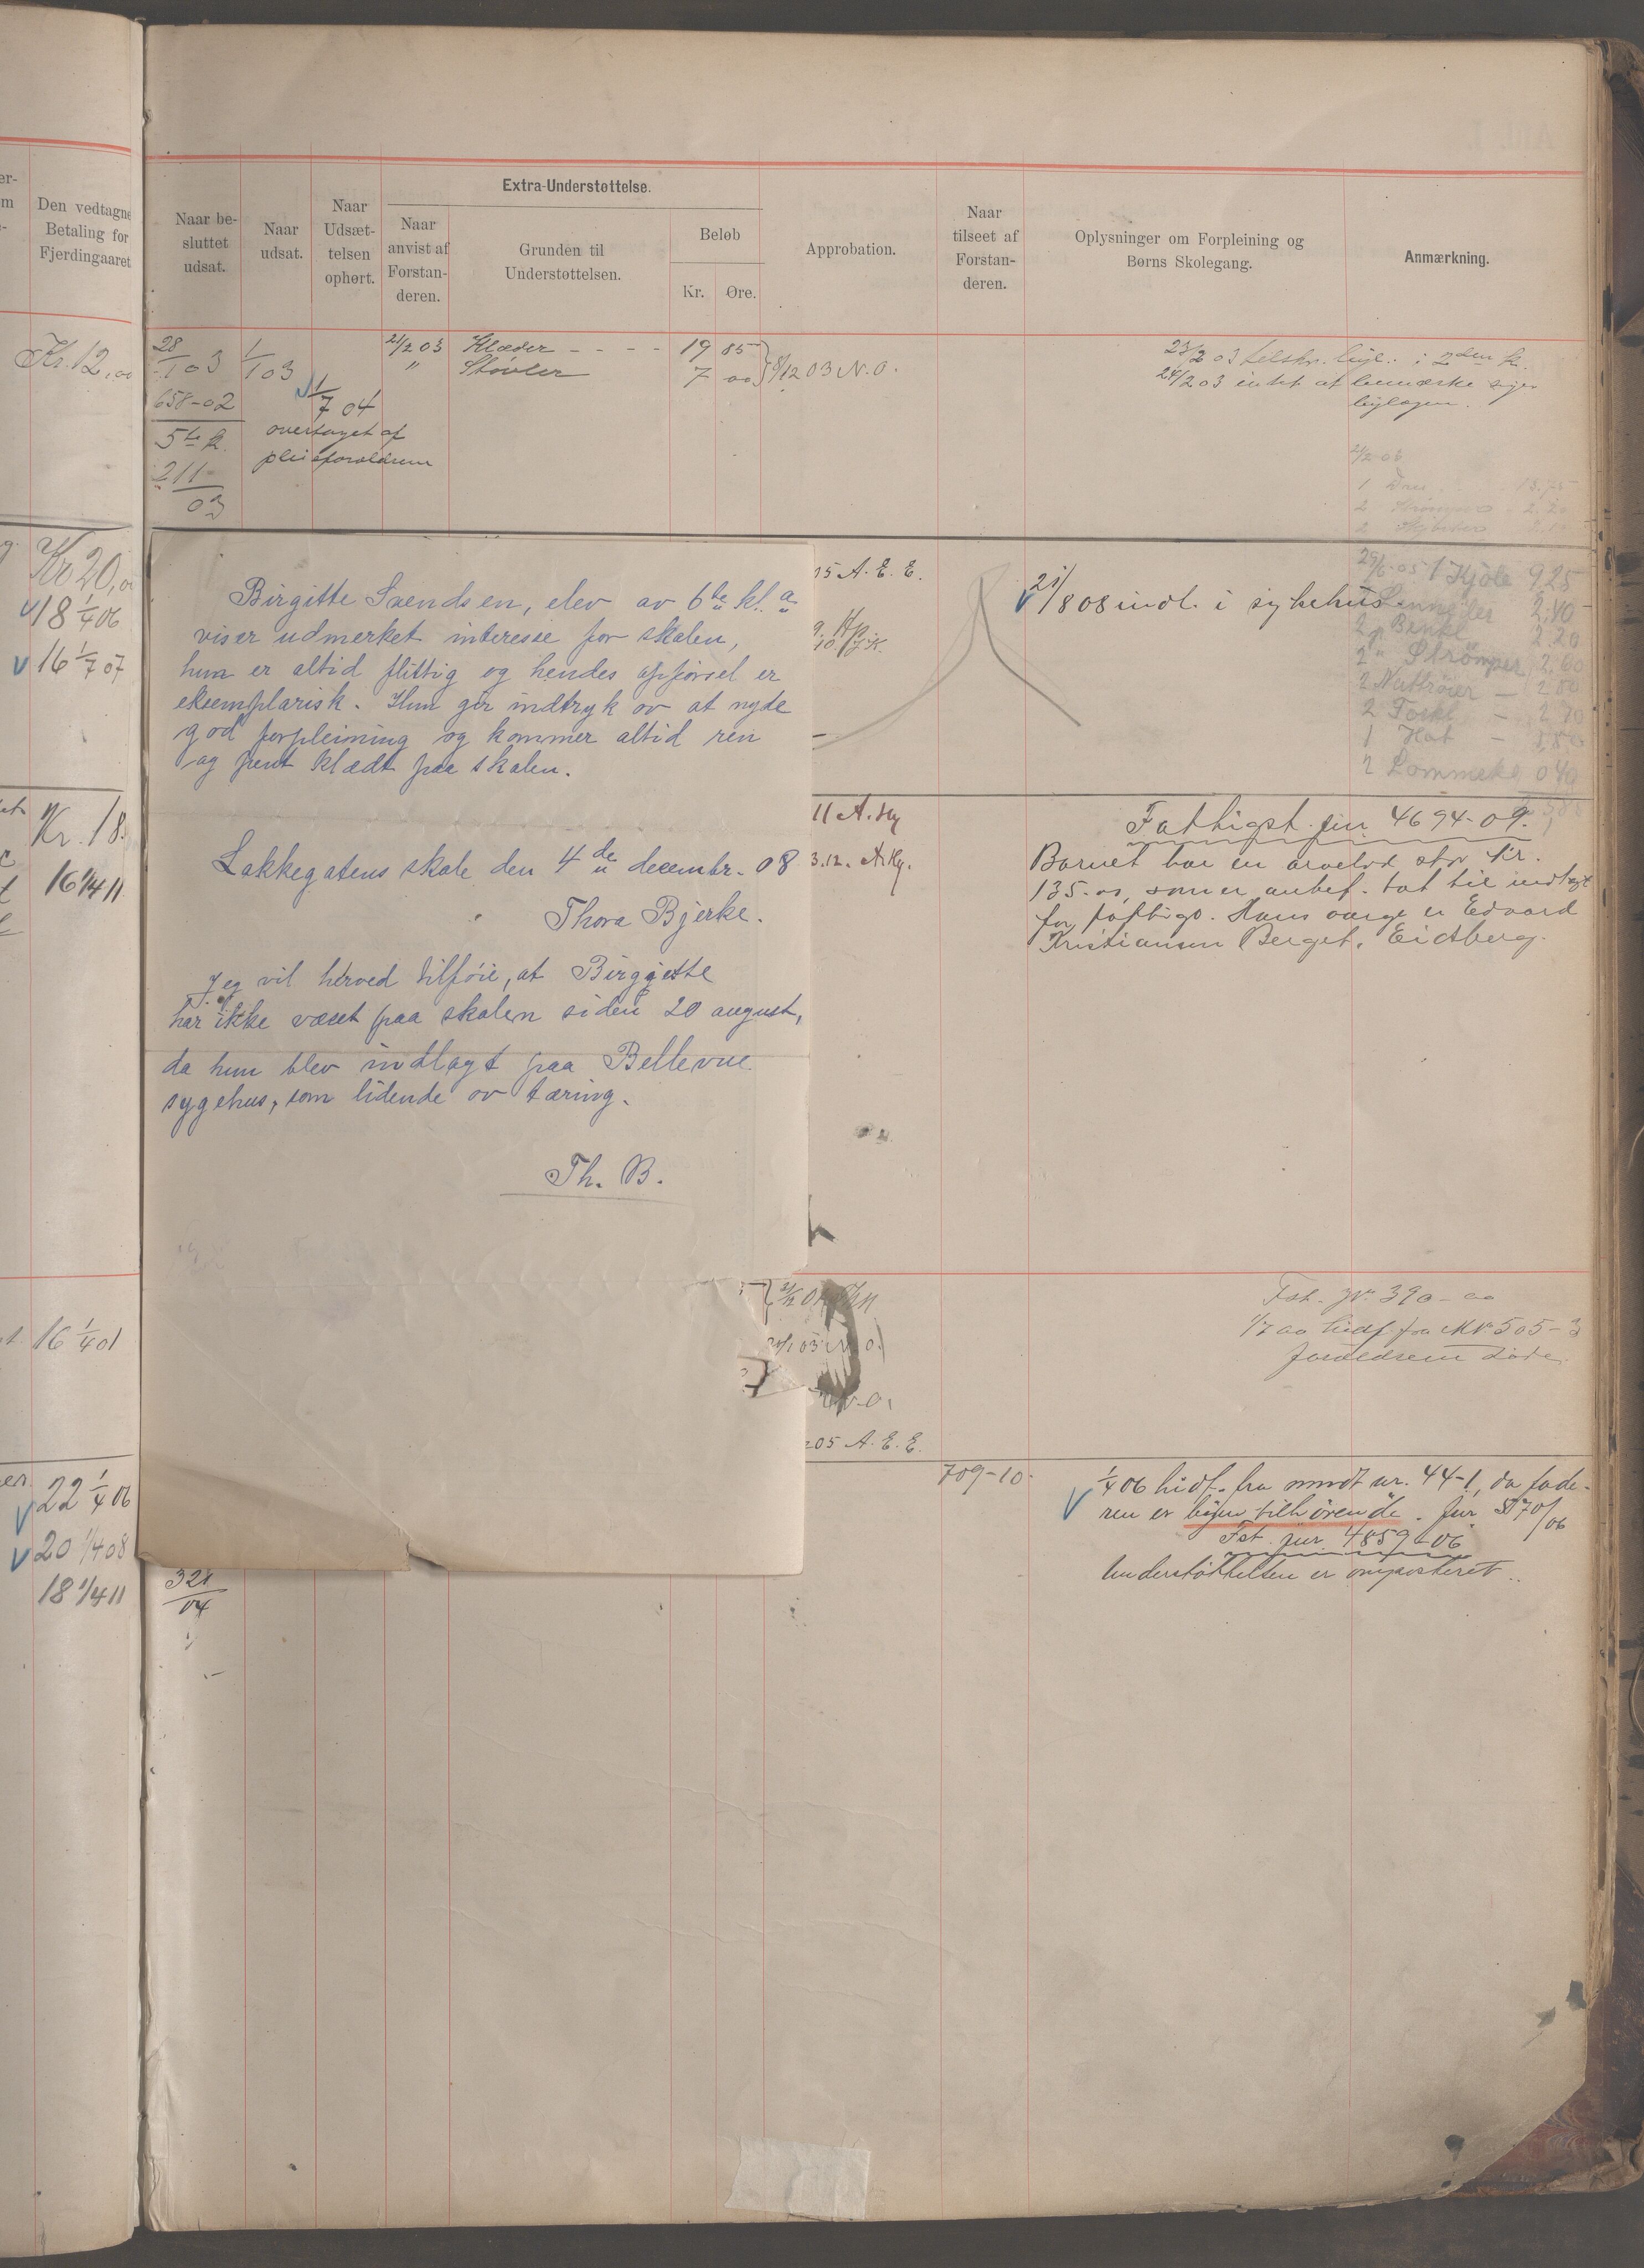 Den vedtagne
Betaling for
Fjerdingaaret
Kr. 12,00
Kr 20,
18 1/4 06
16 1/7 07
Kr. 18.
16 1/4 11
16 1/4 01
22 1/4 06
20 1/4 08
18 1/4 11
Extra-Understøttelse.
Naar be-
sluttet
udsat.
Naar
udsat.
Naar
Udsæt-
telsen
ophørt.
Naar
anvist af
Forstan-
deren.
Grunden til
Understøttelsen.
Beløb
Kr. Øre.
Approbation.
Naar
tilseet af
Forstan-
deren.
Oplysninger om Forpleining og
Børns Skolegang.
Anmærkning.
28/1 03
658-02
5te k.
211
03
1/1 03
1/7 04
overtaget af
pleieforældrene
21/2 03 Klæder - - - - 19 85
" Støvler 7 00
8/12 03 N.O.
23/2 03 i 2den k.
24/2 03 intet at bemærke siger
2/2 06
Birgitte Svendsen, elev av 6te kl. a
viser udmerket interesse for skolen,
hun er altid flittig og hendes opførsel er
eksemplarisk. Hun gir indtryk av at nyde
god forpleining og kommer altid ren
og pent klædt paa skolen.
Lakkegatens skole den 4de decembr. 08
Thora Bjerke.
Jeg vil herved tilføie, at Birgitte
har ikke været paa skolen siden 20 august,
da hun blev indlagt paa Bellevue
sygehus, som lidende av tæring.
Th. B.
05 A. E. E.
21/8 08 indl. i sykehus
29/6-05 1 Kjole 9.25
2.40
2 " Benkl 2.20
2 " Strömper 2.60
2 Nattröier - 2.80
2 Forkl - 2.70
1 Hat - 1.80
2 Lommekl 0.40
11 A. Hg
3.12. A. Hg.
Fattigst. jur. 4694-09.
Barnet har en arvelod stor kr.
135.00, som er anbef. tat til indtægt
for fattigv. Hans værge er Edvard
Kristiansen Berget, Eidsberg.
Fst. Jr. 390-00
1/7 00 hidf fra No 505-3
forældrene døde
05 A. E. E.
709-10
1/4 06 hidf. fra mndt nr. 44-1, da fade-
ren er byen tilhörende. Jur 5170/06
Fst. jur. 4859-06
Understöttelsen er omposteret.
321
04